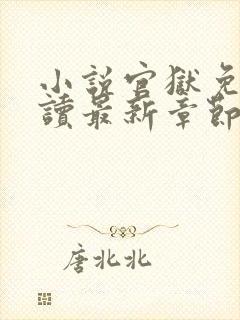 小說官獄免
讀最新章節
唐北北